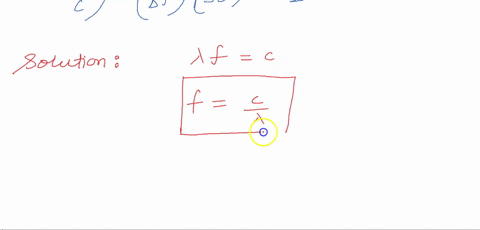 Solution: λf = c
f = c/λ